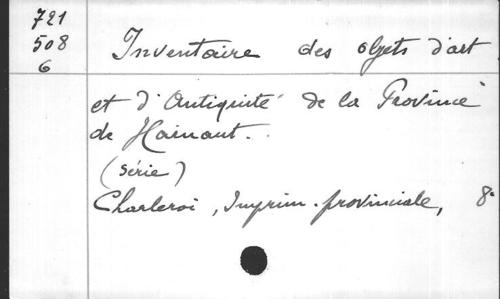 721
508
6
Inventaire des objets d'art
et d'Antiquité de la Province
de Hainaut.
(série)
Charleroi, Imprim. provinciale, 8°